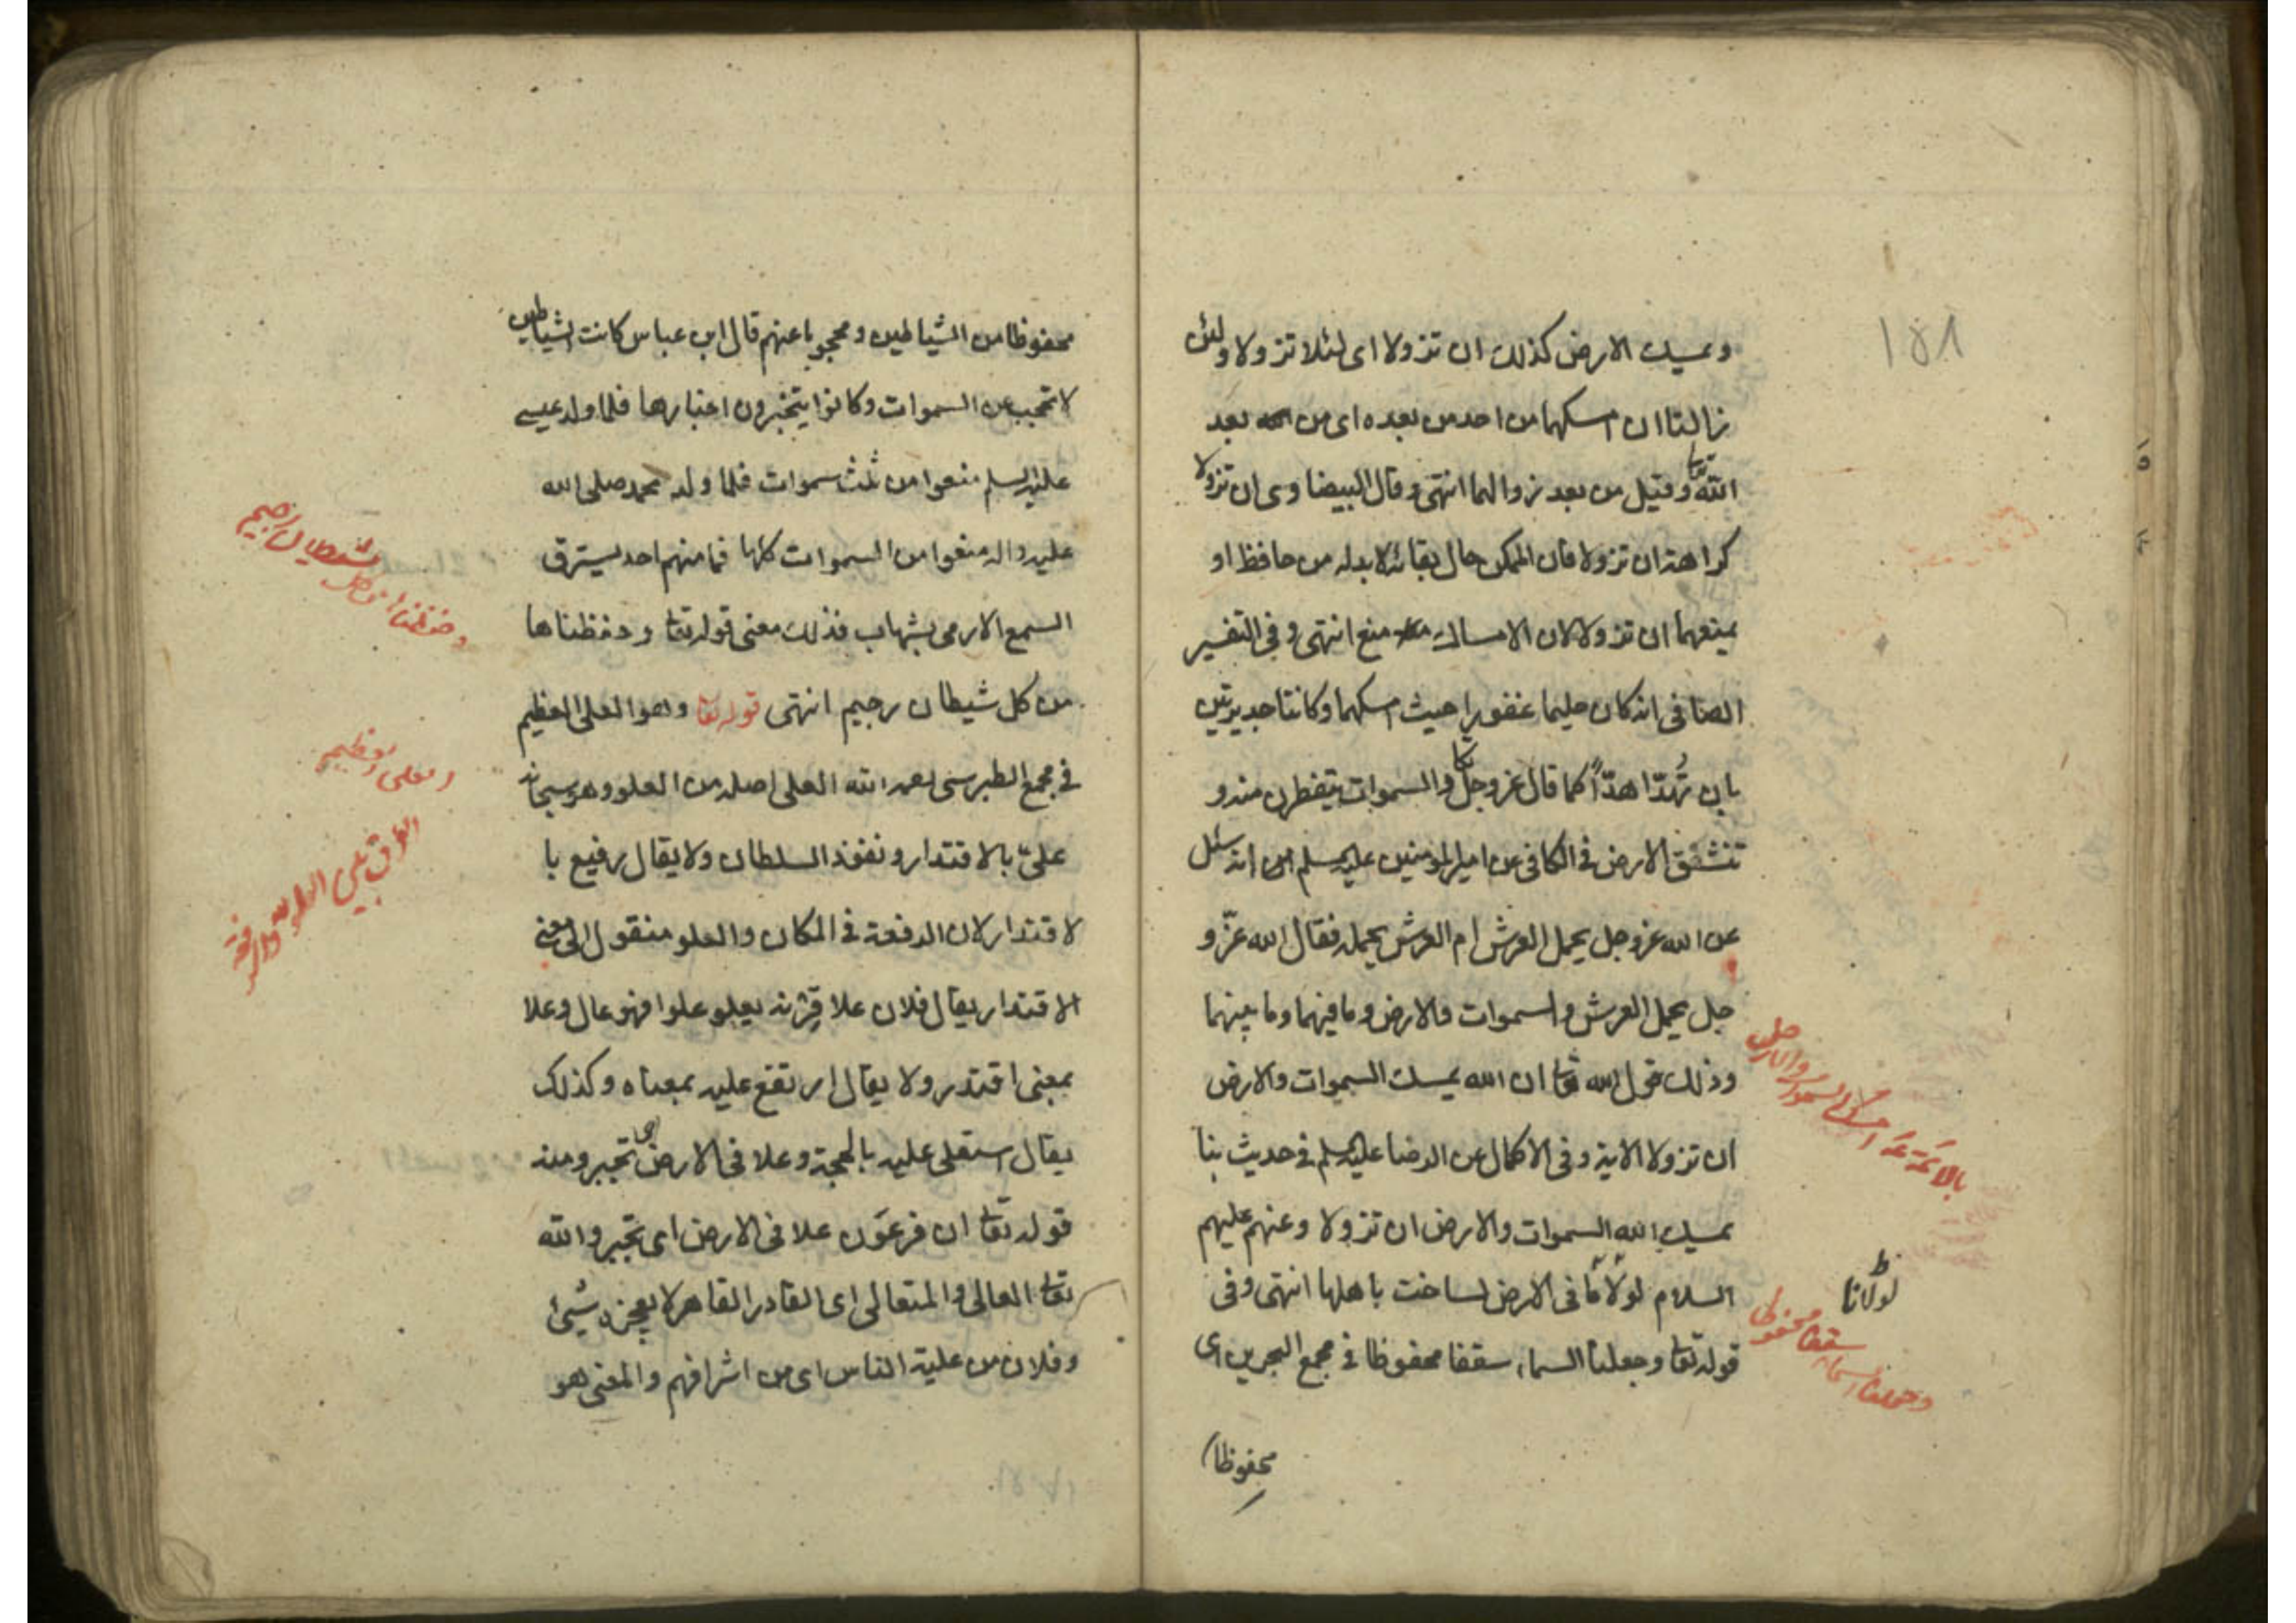 ١٥١
ويمسك الارض كذلك ان تزولا اى لئلا تزولا ولئن
زالتا ان امسكهما من احد من بعده اى من بعد
الله تعا وقيل من بعد زوالهما انتهى وقال البيضاوى ان تزولا
كراهة ان تزولا فان الممكن حال بقائه لا بد له من حافظ او
يمنعهما ان تزولا لان الامساك منع انتهى وفى التفسير
الصافى انه كان حليما غفورا حيث امسكهما وكانتا جديرتين
بان تُهدّا هدّاً كما قال عز وجل تكاد السموات يتفطرن منه و
تنشق الارض فى الكافى عن امير المؤمنين عليه السلم انه سئل
عن الله عز وجل يحمل العرش ام العرش يحمله فقال الله عزّ و
جل يحمل العرش والسموات والارض وما فيهما وما بينهما
وذلك قول الله تعا ان الله يمسك السموات والارض
ان تزولا الاية وفى الاكمال عن الرضا عليه السلم فى حديث بنا
يمسك الله السموات والارض ان تزولا وعنهم عليهم
السلام لولا ما فى الارض لساخت باهلها انتهى وفى
قوله تعا وجعلنا السماء سقفا محفوظا فى مجمع البحرين اى
محفوظا
بالائمة امساك السموات والارض
لولانا
وجعلنا السماء سقفا محفوظا
محفوظا من الشياطين ومحجوبا عنهم قال ابن عباس كانت الشياطين
لا تحجب عن السموات وكانوا يتخبرون اخبارها فلما ولد عيسى
عليه السلم منعوا من ثلث سموات فلما ولد محمد صلى الله
عليه واله منعوا من السموات كلها فما منهم احد يسترق
السمع الا رمى بشهاب فذلك معنى قوله تعا وحفظناها
من كل شيطان رجيم انتهى قوله تعا وهو العلى العظيم
فى مجمع الطبرسى رحمه الله العلى اصله من العلو وهو سبحانه
علىّ بالاقتدار ونفوذ السلطان ولا يقال رفيع با
لاقتدار لان الرفعة فى المكان والعلو منقول الى معنى
الاقتدار يقال فلان علا قرنه يعلو علوا فهو عال وعلا
بمعنى اقتدر ولا يقال ارتفع عليه بمعناه وكذلك
يقال استعلى عليه بالحجة وعلا فى الارض اى تجبر ومنه
قوله تعا ان فرعون علا فى الارض اى تجبر والله
تعا العالى والمتعالى اى القادر القاهر لا يعجزه شيئ
وفلان من علية الناس اى من اشرافهم والمعنى هو
وحفظناها من كل شيطان رجيم
العلى العظيم
الفرق بين العلو والرفعة